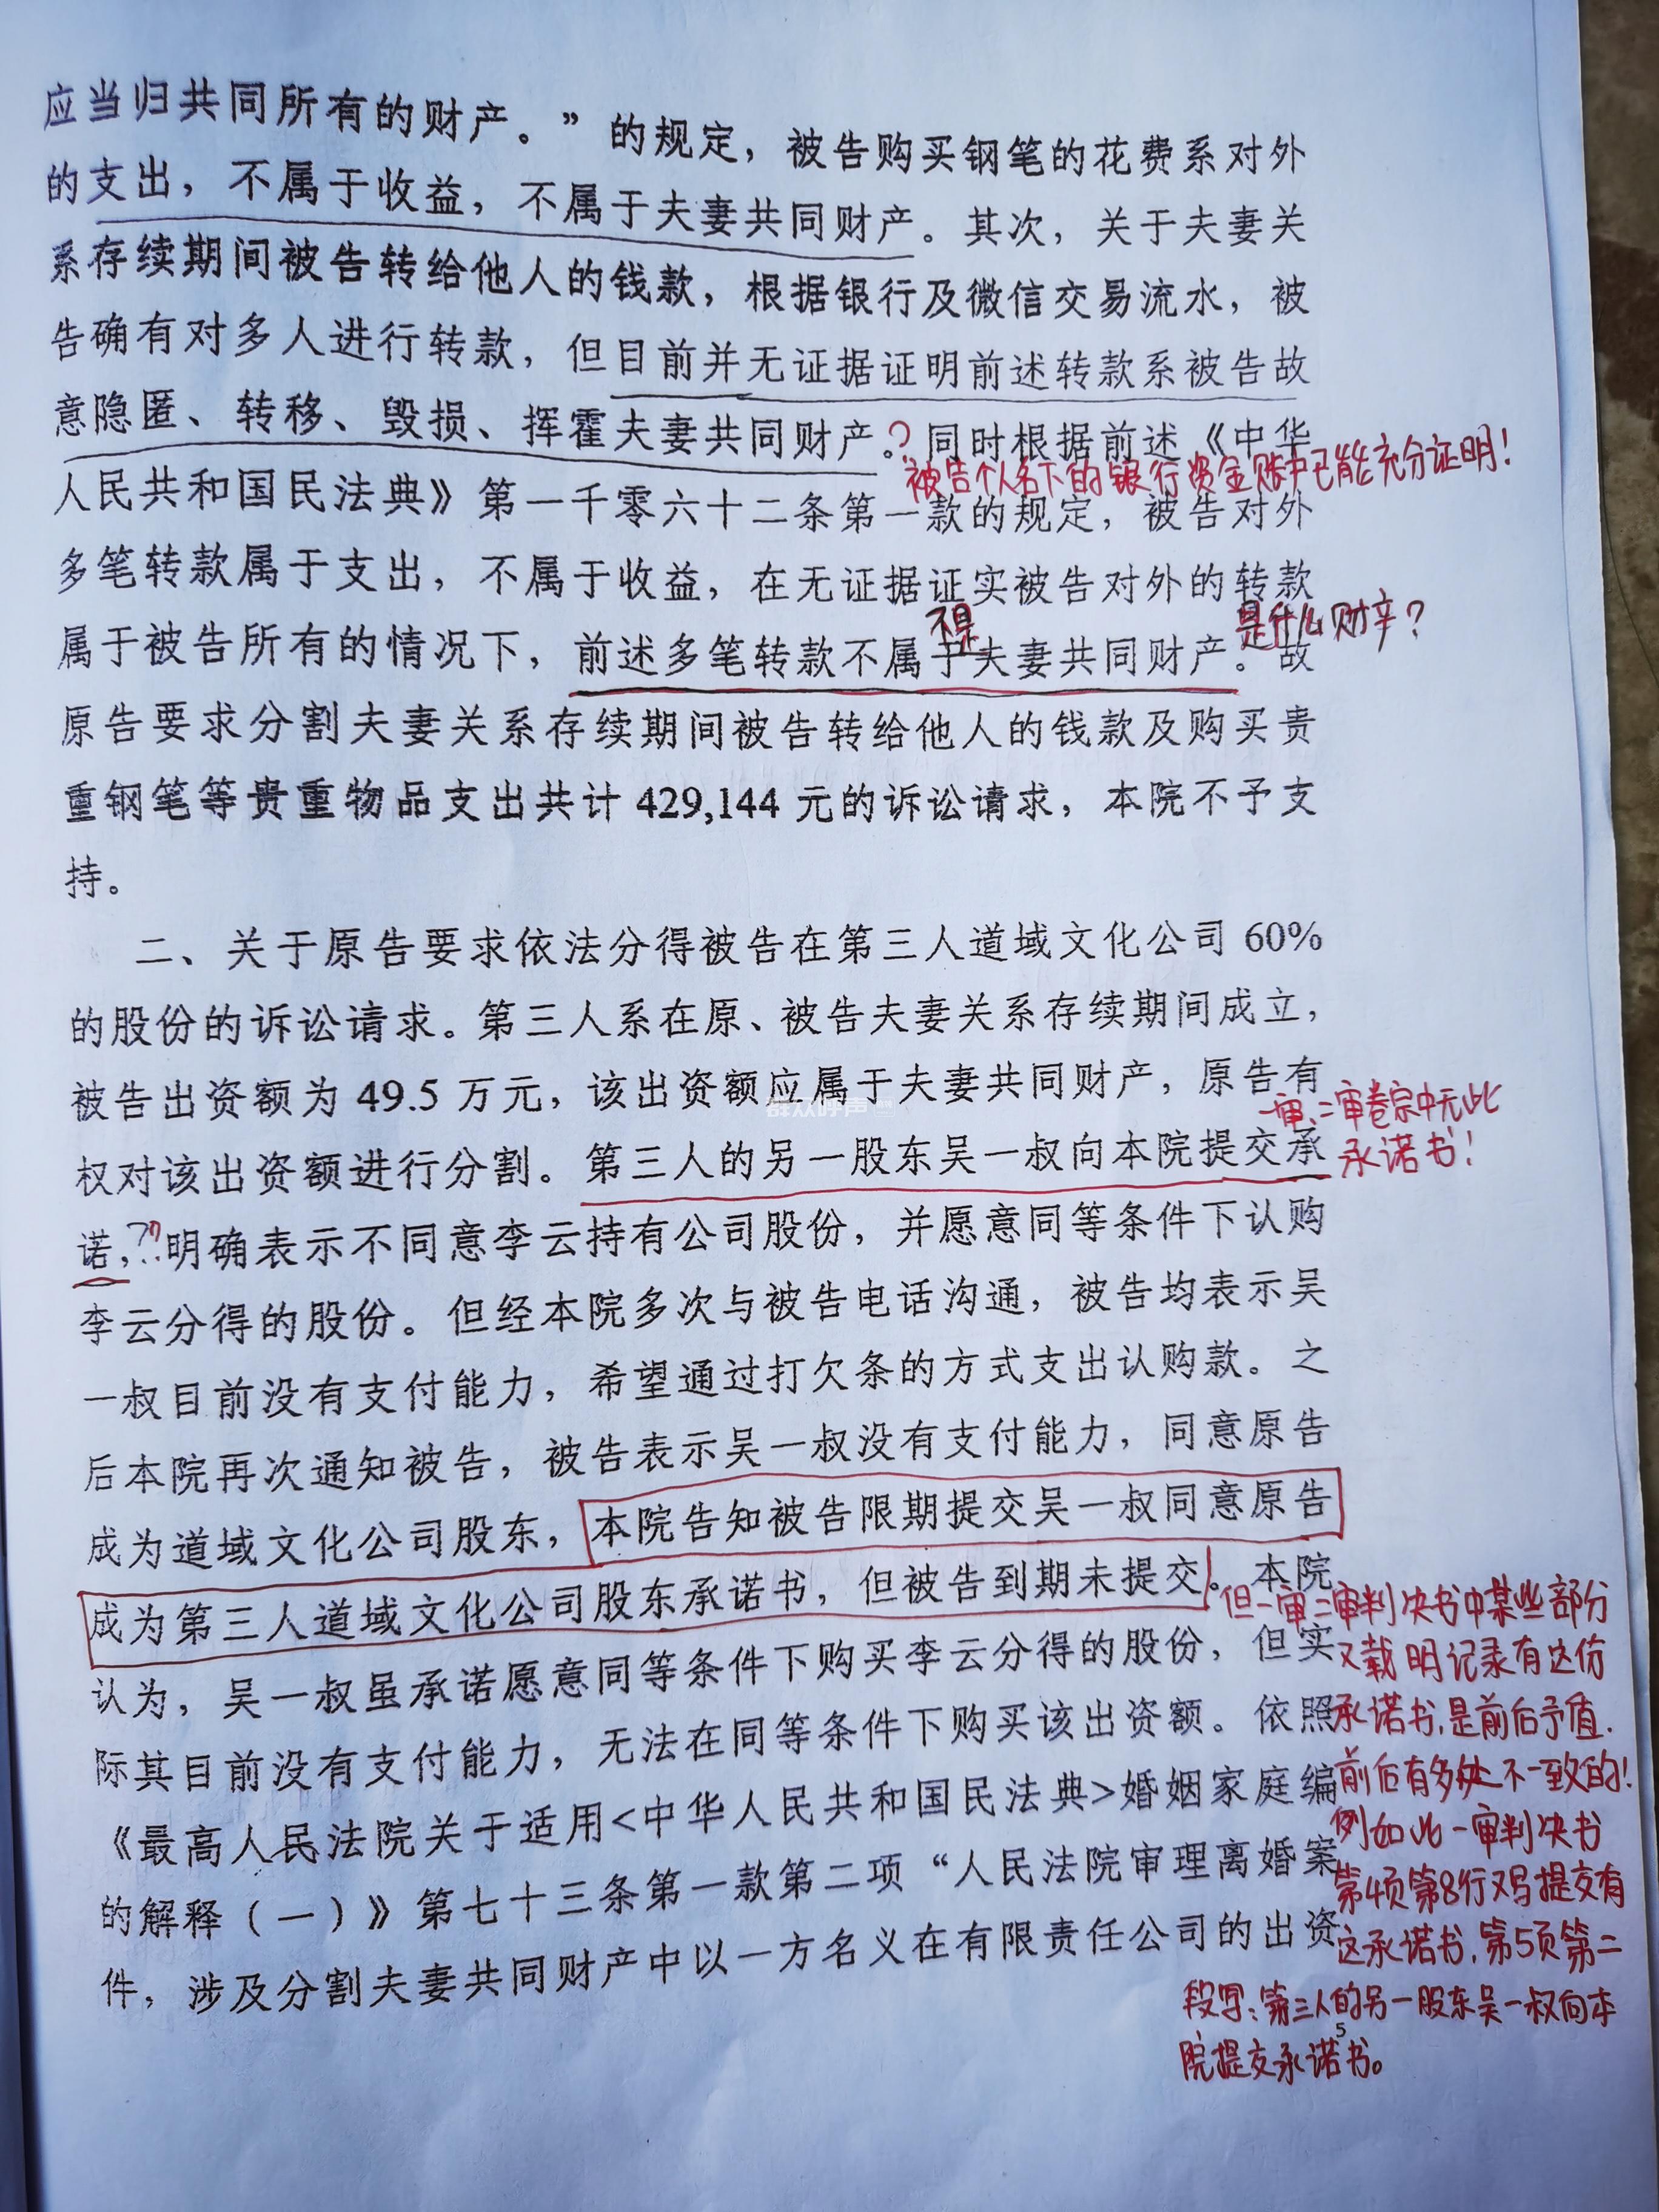 应当归共同所有的财产。”的规定，被告购买钢笔的花费系对外
的支出，不属于收益，不属于夫妻共同财产。其次，关于夫妻关
系存续期间被告转给他人的钱款，根据银行及微信交易流水，被
告确有对多人进行转款，但目前并无证据证明前述转款系被告故
意隐匿、转移、毁损、挥霍夫妻共同财产。?同时根据前述《中华
被告个人名下的银行资金账中已能充分证明!
人民共和国民法典》第一千零六十二条第一款的规定，被告对外
多笔转款属于支出，不属于收益，在无证据证实被告对外的转款
不是
是什么财产?
属于被告所有的情况下，前述多笔转款不属于夫妻共同财产。故
原告要求分割夫妻关系存续期间被告转给他人的钱款及购买贵
重钢笔等贵重物品支出共计 429,144 元的诉讼请求，本院不予支
持。
二、关于原告要求依法分得被告在第三人道域文化公司 60%
的股份的诉讼请求。第三人系在原、被告夫妻关系存续期间成立，
被告出资额为 49.5 万元，该出资额应属于夫妻共同财产，原告有
群众呼声
权对该出资额进行分割。第三人的另一股东吴一叔向本院提交承
一审、二审卷宗中无此
承诺书!
诺，??明确表示不同意李云持有公司股份，并愿意同等条件下认购
李云分得的股份。但经本院多次与被告电话沟通，被告均表示吴
一叔目前没有支付能力，希望通过打欠条的方式支出认购款。之
后本院再次通知被告，被告表示吴一叔没有支付能力，同意原告
成为道域文化公司股东，本院告知被告限期提交吴一叔同意原告
成为第三人道域文化公司股东承诺书，但被告到期未提交。本院
认为，吴一叔虽承诺愿意同等条件下购买李云分得的股份，但实
际其目前没有支付能力，无法在同等条件下购买该出资额。依照
《最高人民法院关于适用<中华人民共和国民法典>婚姻家庭编
的解释（一）》第七十三条第一款第二项“人民法院审理离婚案
件，涉及分割夫妻共同财产中以一方名义在有限责任公司的出资
但一审二审判决书中某些部分
又载明记录有这份
承诺书,是前后予值.
前后有多处不一致的!
例如此一审判决书
第4页第8行又写提交有
这承诺书,第5页第二
段写:第三人的另一股东吴一叔向本
院提交承诺书。
5